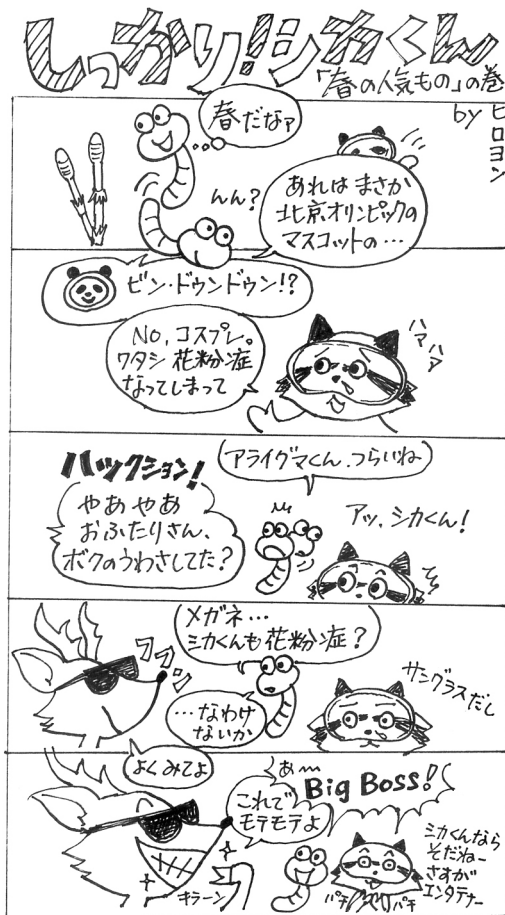 しっかり!シカくん
「春の人気もの」の巻
by ヒロヨン
春だなァ
んん?
あれは まさか
北京オリンピックの
マスコットの…
ビン・ドゥンドゥン!?
NO,コスプレ。
ワタシ 花粉症
なってしまって
ハァハァ
アライグマくん、つらいね
ハックション!
やあやあ
おふたりさん、
ボクのうわさしてた?
アッ、シカくん!
メガネ…
シカくんも花粉症?
フイッ
…なわけ
ないか
サングラスだし
よくみてよ
あ〜
Big Boss!
これで
モテモテよ
キラーン
シカくんなら
そだねー
さすが
エンタテナー
パチパチ